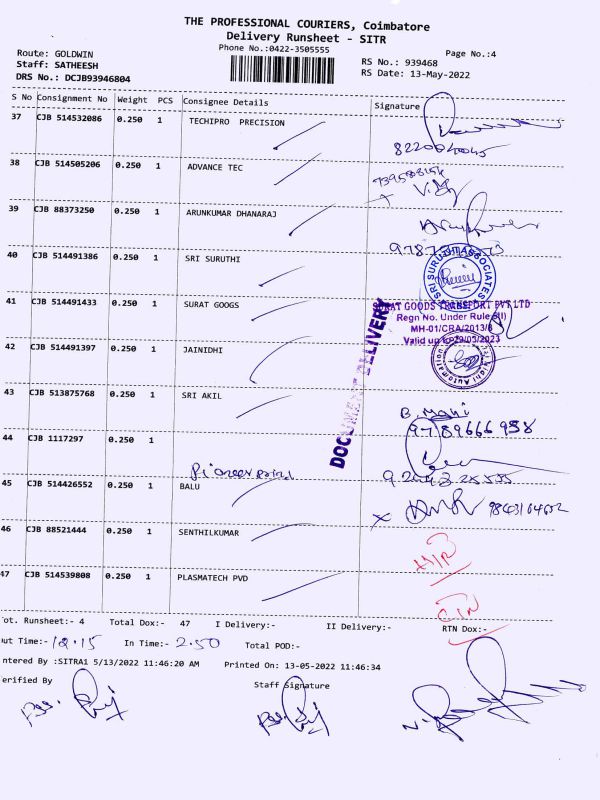 THE PROFESSIONAL COURIERS, Coimbatore
Delivery Runsheet - SITR
Phone No.:0422-3505555
Page No.:4
Route: GOLDWIN
Staff: SATHEESH
DRS No.: DCJB93946804
RS No.: 939468
RS Date: 13-May-2022
S No Consignment No Weight PCS Consignee Details Signature
37 CJB 514532086 0.250 1 TECHIPRO PRECISION
38 CJB 514505206 0.250 1 ADVANCE TEC
39 CJB 88373250 0.250 1 ARUNKUMAR DHANARAJ
40 CJB 514491386 0.250 1 SRI SURUTHI
SRI SURUTHI ASSOCIATES
41 CJB 514491433 0.250 1 SURAT GOOGS
SURAT GOODS TRANSPORT PVT LTD
Regn No. Under Rule
MH-01/CRA/2013/
Valid up
DOCUMENT DELIVERY
42 CJB 514491397 0.250 1 JAINIDHI
Automation
43 CJB 513875768 0.250 1 SRI AKIL
B. Mani
9789666958
44 CJB 1117297 0.250 1
45 CJB 514426552 0.250 1 BALU
46 CJB 88521444 0.250 1 SENTHILKUMAR
47 CJB 514539808 0.250 1 PLASMATECH PVD
ot. Runsheet:- 4 Total Dox:- 47 I Delivery:- II Delivery:- RTN Dox:-
ut Time:- 12.15 In Time:- 2.50 Total POD:-
ntered By :SITRA1 5/13/2022 11:46:20 AM Printed On: 13-05-2022 11:46:34
erified By Staff Signature